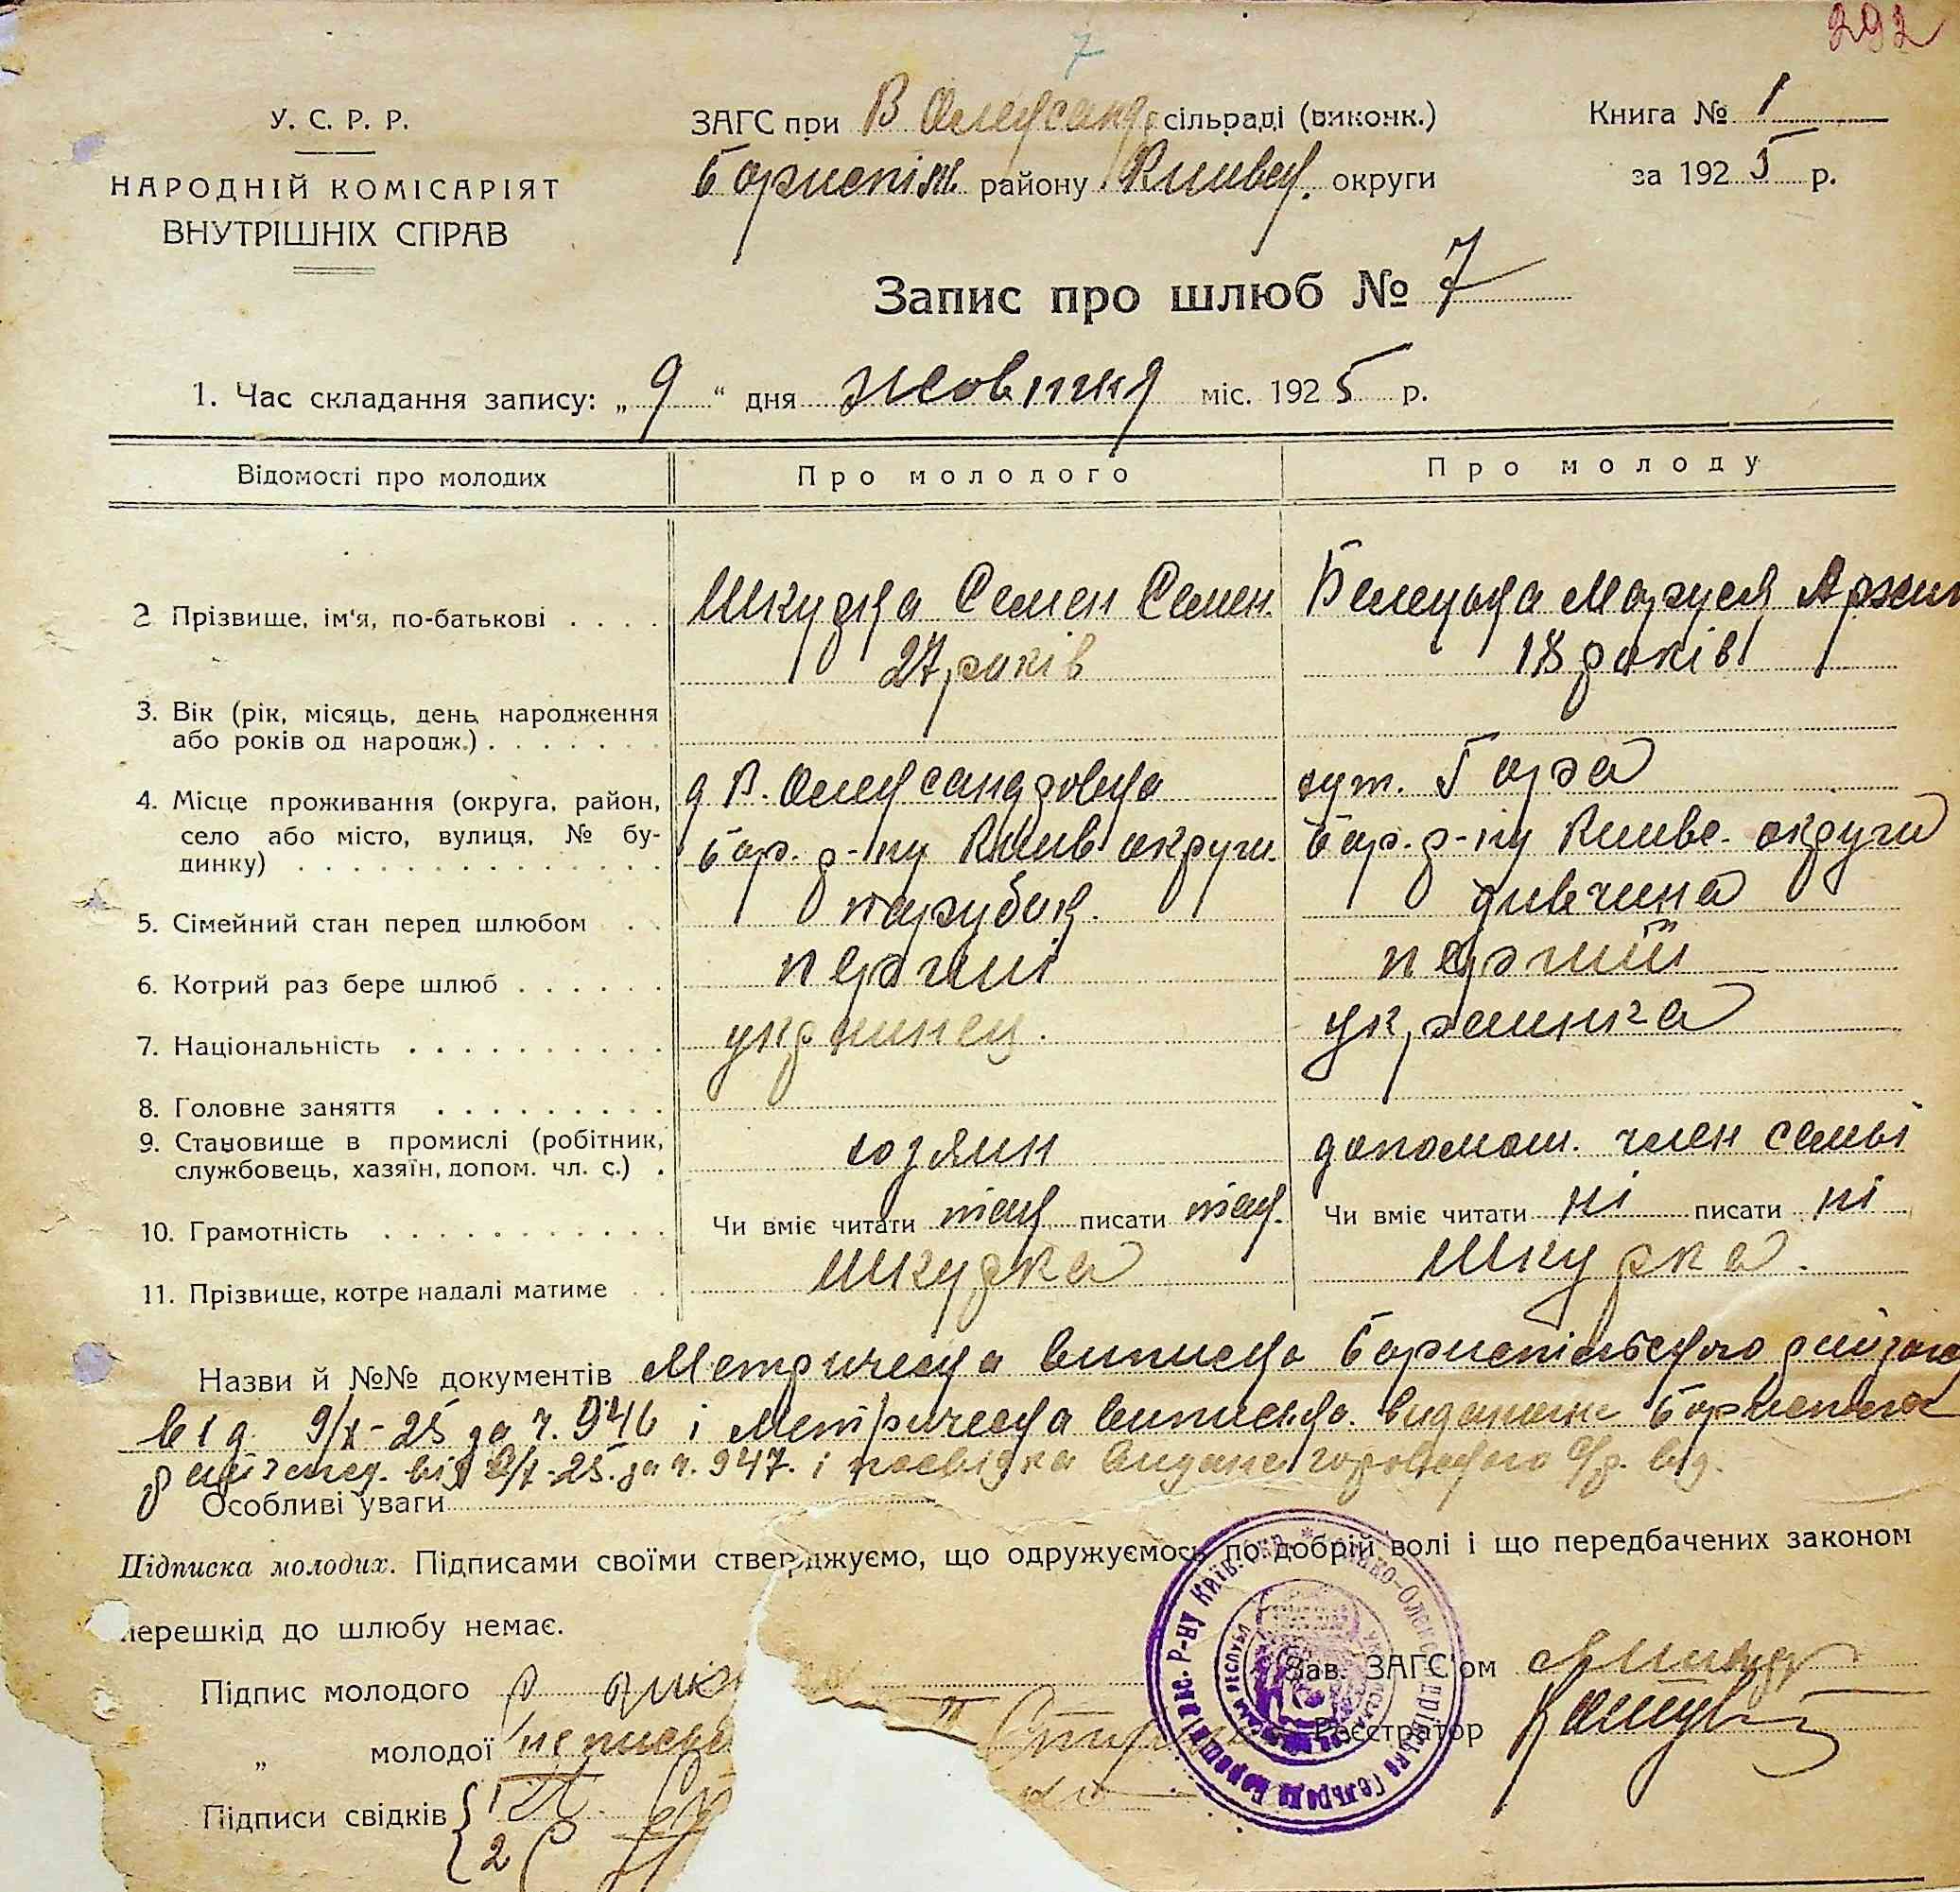 292
7
У. С. Р. Р.
НАРОДНІЙ КОМІСАРІЯТ
ВНУТРІШНІХ СПРАВ
ЗАГС при В Олександр сільраді (виконк.)
Бориспіль району Київск. округи
Книга № 1
за 1925 р.
Запис про шлюб № 7
1. Час складання запису: „ 9 “ дня жовтня міс. 1925 р.
Відомості про молодих
Про молодого
Про молоду
2 Прізвище, ім'я, по-батькові
Шкурка Семен Семен.
Маруся
3. Вік (рік, місяць, день народження
або років од народж.)
27 років
18 років
4. Місце проживання (округа, район,
село або місто, вулиця, № бу-
динку)
д В. Олександровка
Бор. р-ну Київ округи.
хут. Гора
Бор. р-ну Киівс. округи
5. Сімейний стан перед шлюбом
парубок.
дивчина
6. Котрий раз бере шлюб
перший
перший
7. Національність
украинец.
украинка
8. Головне заняття
9. Становище в промислі (робітник,
службовець, хазяїн, допом. чл. с.)
хозяин
допомаш. член семьі
10. Грамотність
Чи вміє читати так писати так.
Чи вміє читати ні писати ні
11. Прізвище, котре надалі матиме
Шкурка
Шкурка.
Назви й №№ документів Метрическа виписка Бориспільского
від 9/X-25 за ч. 946 і Метрическа виписка
від 9/X-25. за ч. 947. і посвідка видана
Особливі уваги
Підписка молодих. Підписами своїми стверджуємо, що одружуємось по добрій волі і що передбачених законом
перешкід до шлюбу немає.
Підпис молодого
„ молодої
Підписи свідків
1
2
Зав. ЗАГС'ом
Реєстратор